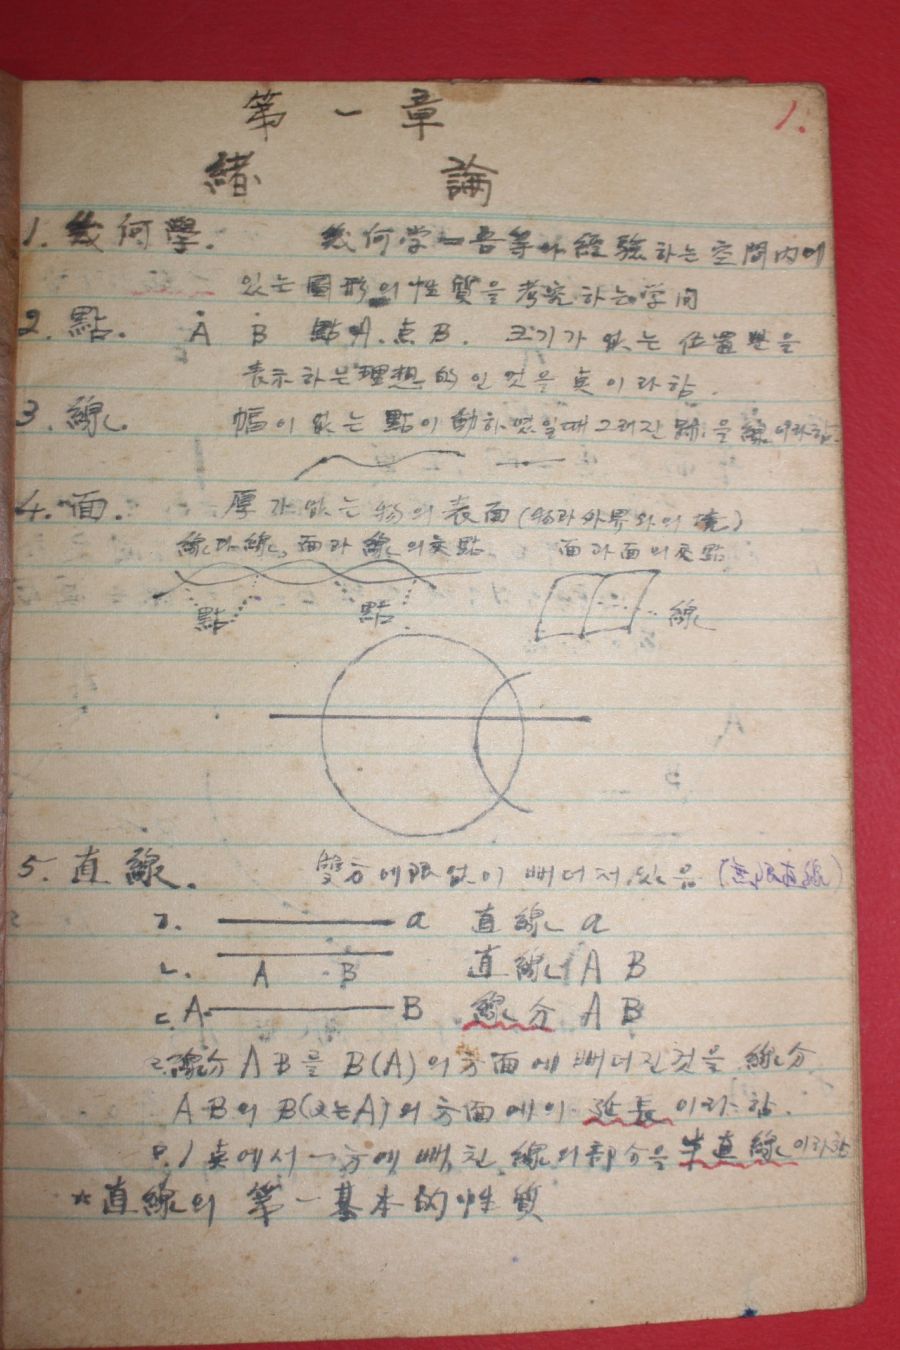 1.
第一章
緒論
1. 幾何學. 幾何学ー吾等가 経験하는 空間内에
있는 圖形의 性質을 考究하는 学问
2. 點. A B 點A. 点B. 크기가 없는 位置만을
表示하는 理想的인 것을 点이라함.
3. 線. 幅이 없는 點이 動하였을때 그려진 跡을 線이라함.
4. 面. 厚가 없는 物의 表面(物과 外界와의 境)
線과 線, 面과 線의 交點 面과 面의 交點
點 點. 線
5. 直線. 双方에 限없이 뻐더저있음 (無限直線)
ㄱ. a 直線 a
ㄴ. A B 直線 A B
ㄷ. A B 線分 A B
ㄹ. 線分 A B를 B(A)의 方面에 뻐더진것을 線分
A B의 B(又는A)의 方面에의 延長이라함.
ㅁ. 1点에서 一方에 뻐친 線의 部分을 半直線이라함
*直線의 第一基本的性質